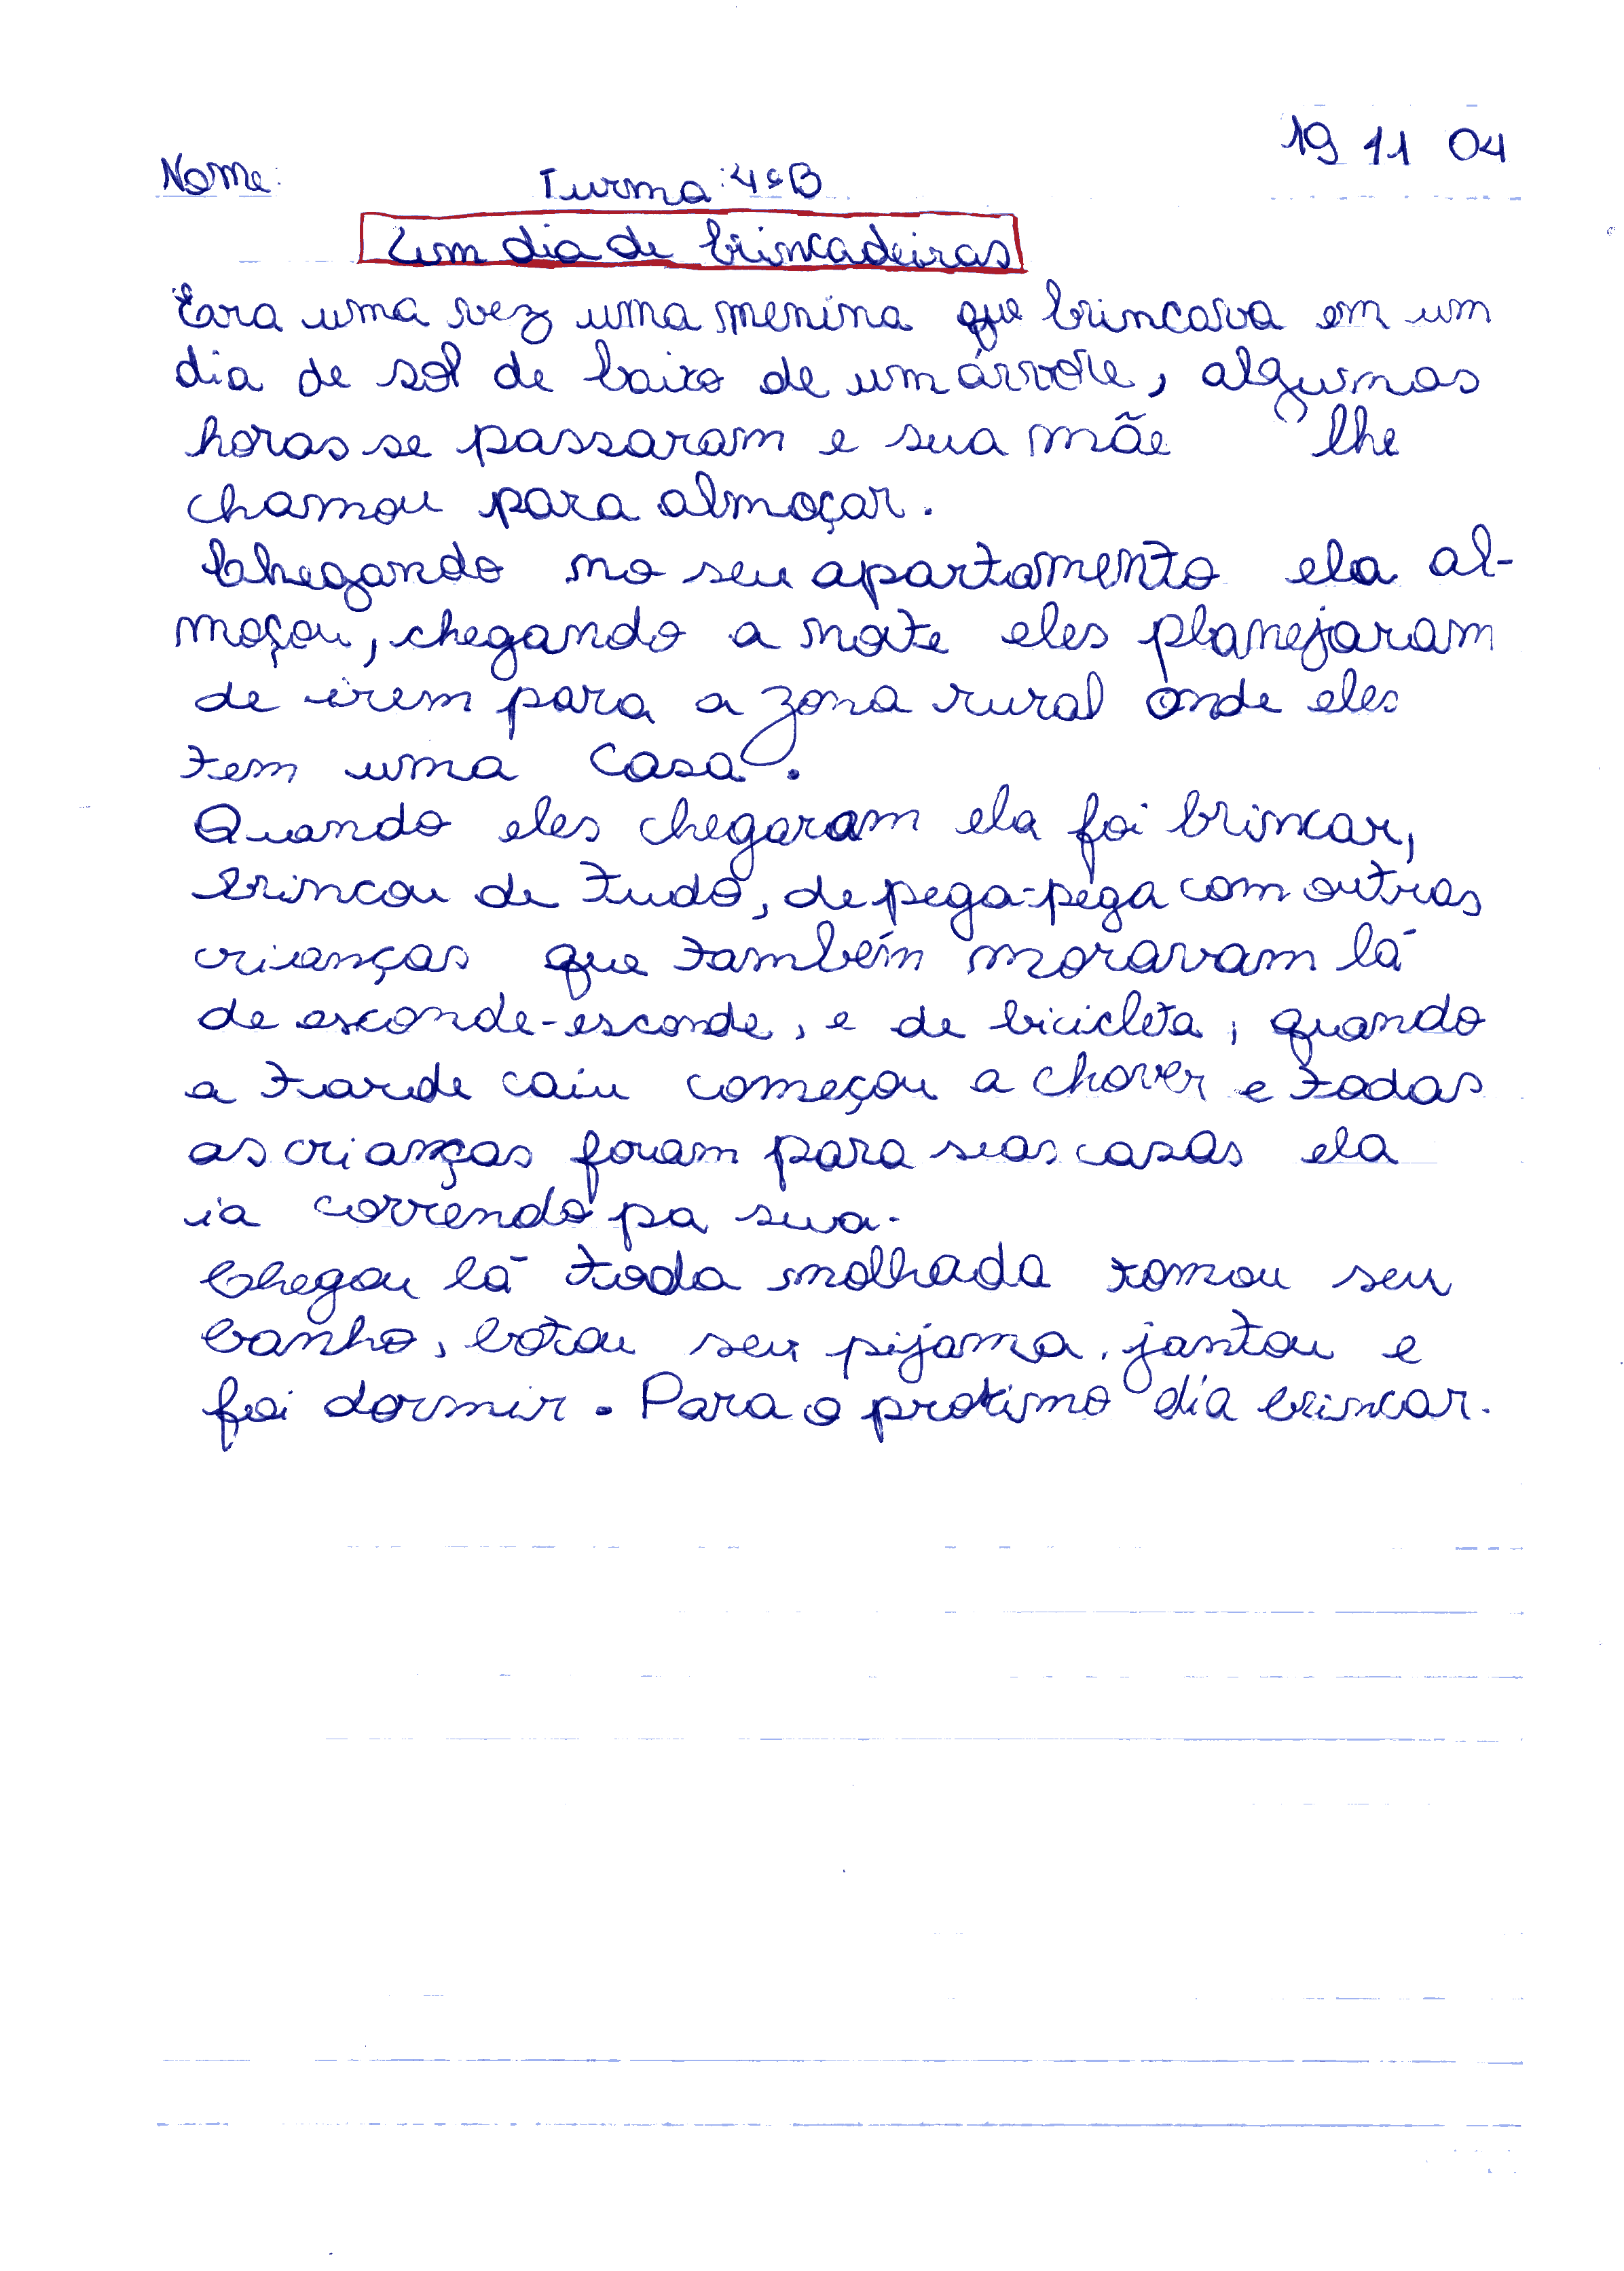 19 11 04
Nome: Turma: 4ªB
Um dia de brincadeiras
Era uma vez uma menina que brincava em um
dia de sol de baixo de um árvore, algumas
horas se passaram e sua mãe lhe
chamou para almoçar.
Chegando no seu apartamento ela al-
moçou, chegando a noite eles planejaram
de irem para a zona rural onde eles
tem uma casa.
Quando eles chegaram ela foi brincar,
brincou de tudo, de pega-pega com outras
crianças que também moravam lá
de esconde-esconde, e de bicicleta, quando
a tarde caiu começou a chover e todas
as crianças foram para suas casas ela
ia correndo pa sua.
Chegou lá toda molhada tomou seu
banho, botou seu pijama, jantou e
foi dormir. Para o protimo dia brincar.